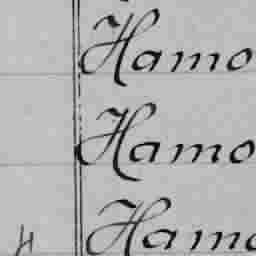 Hamo
Hamo
H Hamo